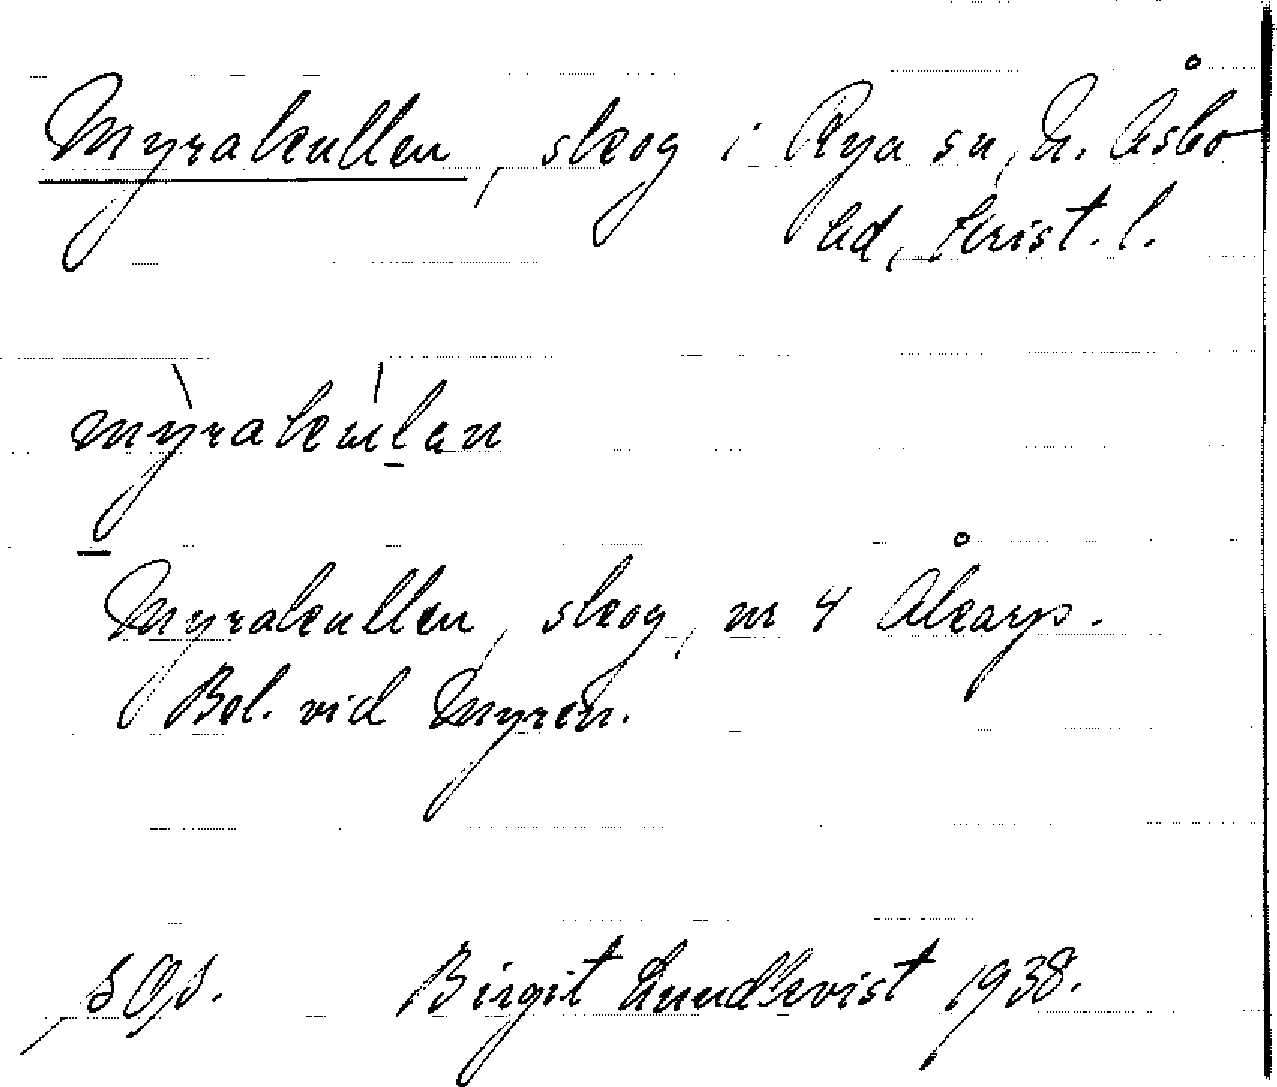 Myrakullen, skog i Rya sn, N. Åsbo
hd, Krist. l.
my̍rakul̲an
Myrakullen, skog, nr 4 Åkarp.
Bel. vid Myren.
Birgit Lundkvist 1938.